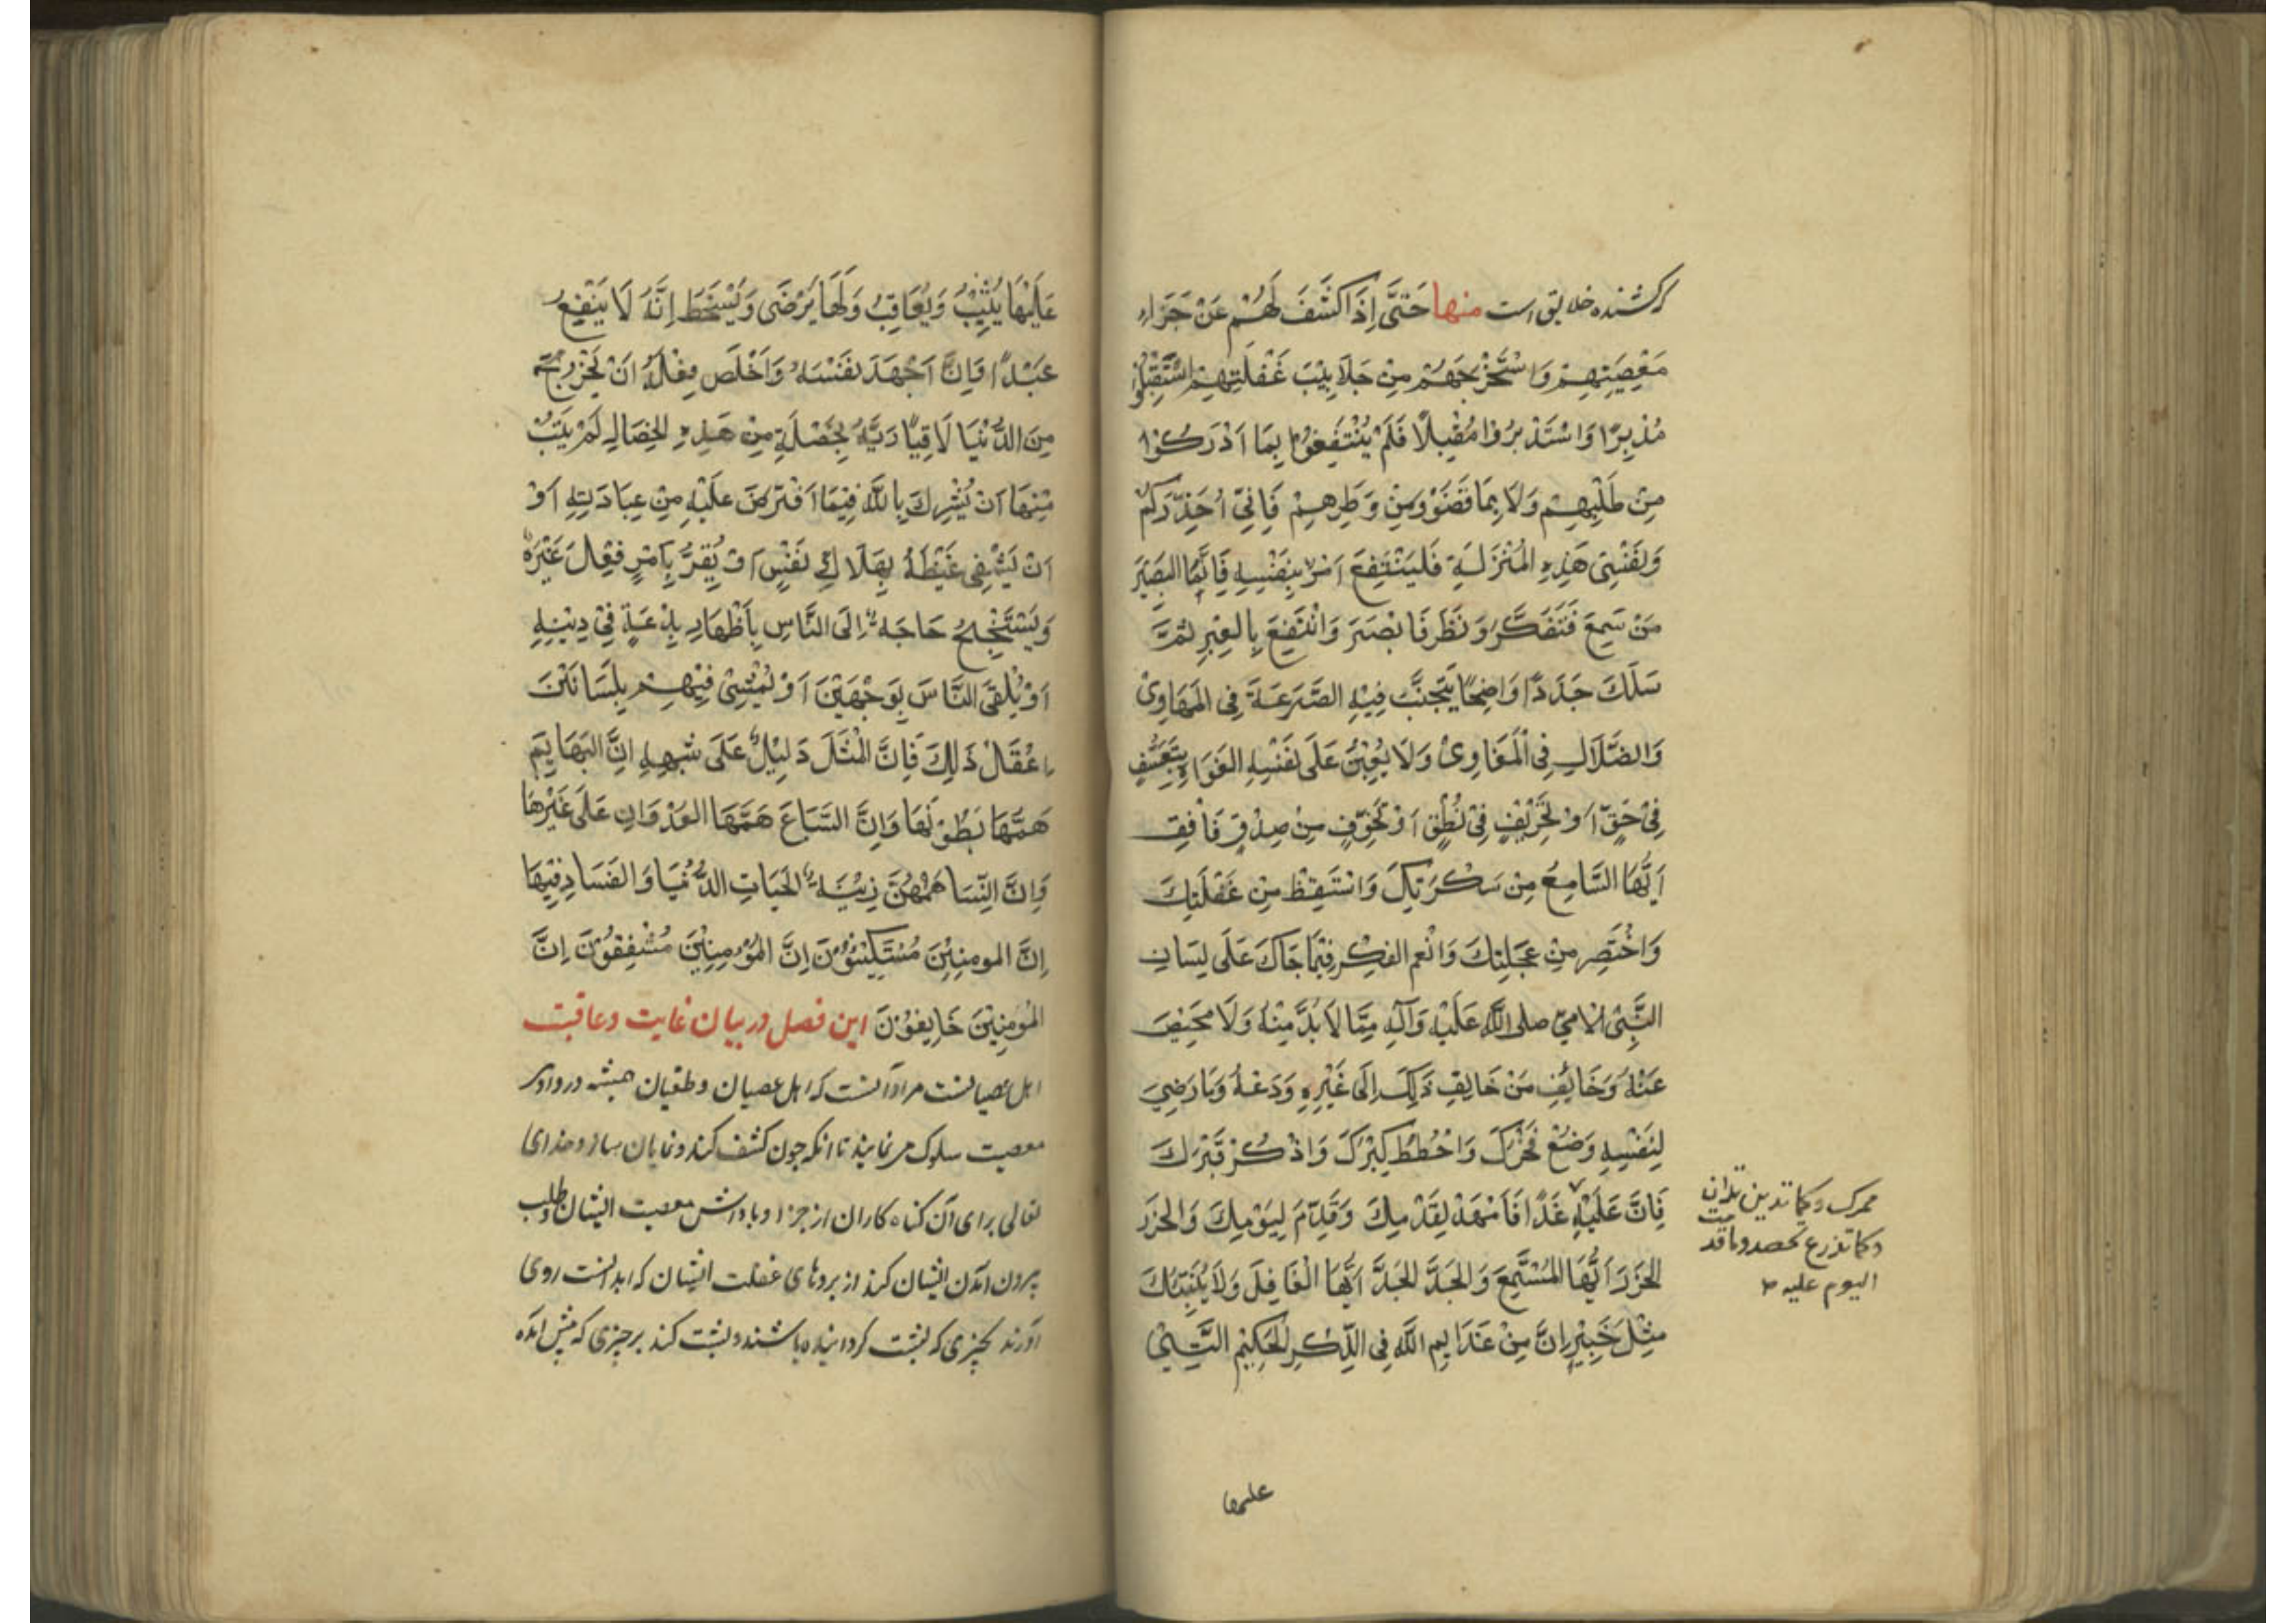 که کشنده خلایق است منها حَتَّى إِذَا كَشَفَ لَهُمْ عَنْ جَزَاءِ
مَعْصِيَتِهِمْ وَاسْتَخْرَجَهُمْ مِنْ جَلَابِيْبَ غَفْلَتِهِمْ اسْتَقْبَلُوْا
مُدْبِرًا وَاسْتَدْبَرُوْا مُقْبِلًا فَلَمْ يَنْتَفِعُوْا بِمَا اَدْرَكُوْا
مِنْ طَلَبِهِمْ وَلَا بِمَا قَضَوْا مِنْ وَطَرِهِمْ فَاِنِّيْ اُحَذِّرُكُمْ
وَنَفْسِيْ هَذِهِ الْمَنْزَلَةِ فَلْيَنْتَفِعَ امْرُؤٌ بِنَفْسِهِ فَاِنَّمَا البَصِيْرَ
مَنْ سَمِعَ فَتَفَكَّرَ وَنَظَرَ فَابْصَرَ وَانْتَفَعَ بِالْعِبَرِ ثُمَّ
سَلَكَ جَدَدًا وَاضِحًا يَتَجَنَّبُ فِيْهِ الصَّرَعَةَ فِي الْمَهَاوِيْ
وَالضَّلَالِ فِي الْمَغَاوِيْ وَلَا يُعِيْنُ عَلَى نَفْسِهِ الغَوَاةِ بِتَعَسُّفٍ
فِيْ حَقٍّ اَوْ تَحْرِيْفٍ فِيْ نُطْقٍ اَوْ تَخَوُّفٍ مِنْ صِدْقٍ فَافِقْ
اَيُّهَا السَّامِعُ مِنْ سَكْرَتِكَ وَاسْتَيْقِظْ مِنْ غَفْلَتِكَ
وَاخْتَصِرْ مِنْ عَجَلَتِكَ وَانْعِم الفِكْرَ فِيْمَا جَاكَ عَلَى لِسَانِ
النَّبِيِّ الْامِيِّ صلى اللَّه عَلَيْهِ وَآلِهِ مِمَّا لَابُدَّ مِنْهُ وَلَا مَحِيْصَ
عَنْهُ وَخَالِفْ مَنْ خَالِفَ ذَلِكَ اِلَى غَيْرِهِ وَدَعْهُ وَمَا رَضِيَ
لِنَفْسِهِ وَضَعْ فَخْرَكَ وَاحْطُطْ كِبْرَكَ وَاذْكُرْ قَبْرَكَ
فَاِنَّ عَلَيْهِ غَدًا فَامْهَدْ لِقَدَمِكَ وَقَدِّمْ لِيَوْمِكَ وَالْحَزَرَ
الْحَزَرَ اَيُّهَا الْمُسْتَمِعَ وَالْجَدَّ الْجَدَّ اَيُّهَا الْغَافِلَ وَلَا يُنَبِّئُكَ
مِثْلَ خَبِيْرٍ اِنَّ مِنْ عَزَايِمِ اللَّه فِي الذِّكْرِ الْحَكِيْمِ الَّتِيْ
ممرک وکما تدین تدان
وکما تزرع تحصد وما قدمت
الیوم علیه
علیها
عَلَيْهَا يُثِيْبُ وَيُعَاقِبُ وَلَهَا يَرْضَى وَيَسْخَطُ اِنَّهُ لَا يَنْفَعُ
عَبْدًا وَاِنْ اَجْهَدَ نَفْسَهُ وَاَخْلَصَ فِعْلَهُ اَنْ يَخْرُجَ
مِنَ الدُّنْيَا لَاقِيًا رَبَّهُ بِخَصْلَةٍ مِنْ هَذِهِ الْخِصَالِ لَمْ يَتُبْ
مِنْهَا اَنْ يُشْرِكَ بِاللَّهِ فِيْمَا افْتَرَضَ عَلَيْهِ مِنْ عِبَادَتِهِ اَوْ
اَنْ يَشْفِيَ غَيْظَهُ بِهَلَاكِ نَفْسٍ اَوْ يُقِرَّ بِاَمْرٍ فِعْلَ غَيْرِهِ
وَيَسْتَنْجِحُ حَاجَةً اِلَى النَّاسِ بِاَظْهَارِ بِدْعَةٍ فِيْ دِيْنِهِ
اَوْ يَلْقَى النَّاسَ بِوَجْهَيْنَ اَوْ يَمْشِيْ فِيْهِمْ بِلِسَانَيْنَ
اعْقِلْ ذَلِكَ فَاِنَّ الْمَثَلَ دَلِيْلٌ عَلَى شِبْهِهِ اِنَّ البَهَايِمَ
هَمَّهَا بُطُوْنُهَا وَاِنَّ السِّبَاعَ هَمَّهَا العُدْوَانِ عَلَى غَيْرِهَا
وَاِنَّ النِّسَا هَمُّهُنَّ زِيْنَةُ الْحَيَاتِ الدُّنْيَا وَالفَسَادِ فِيْهَا
اِنَّ المومِنِيْنَ مُسْتَكِيْنُوْنَ اِنَّ الْمُؤْمِنِيْنَ مُشْفِقُوْنَ اِنَّ
الْمُومِنِيْنَ خَايِفُوْنَ این فصل در بیان غایت وعاقبت
اهل عصیانست مراد آنست که اهل عصیان وطغیان همیشه در وادی
معصیت سلوک می نمایند تا آنکه چون کشف کند ونمایان سازد خدای
تعالی برای آن کناه کاران از جزا وپاداش معصیت ایشان وطلب
بیرون آمدن ایشان کند از پردهای غفلت ایشان که ابدانست روی
آورند بچیزی که پشت کردانیده باشند وپشت کنند بر چیزی که پیش آمده